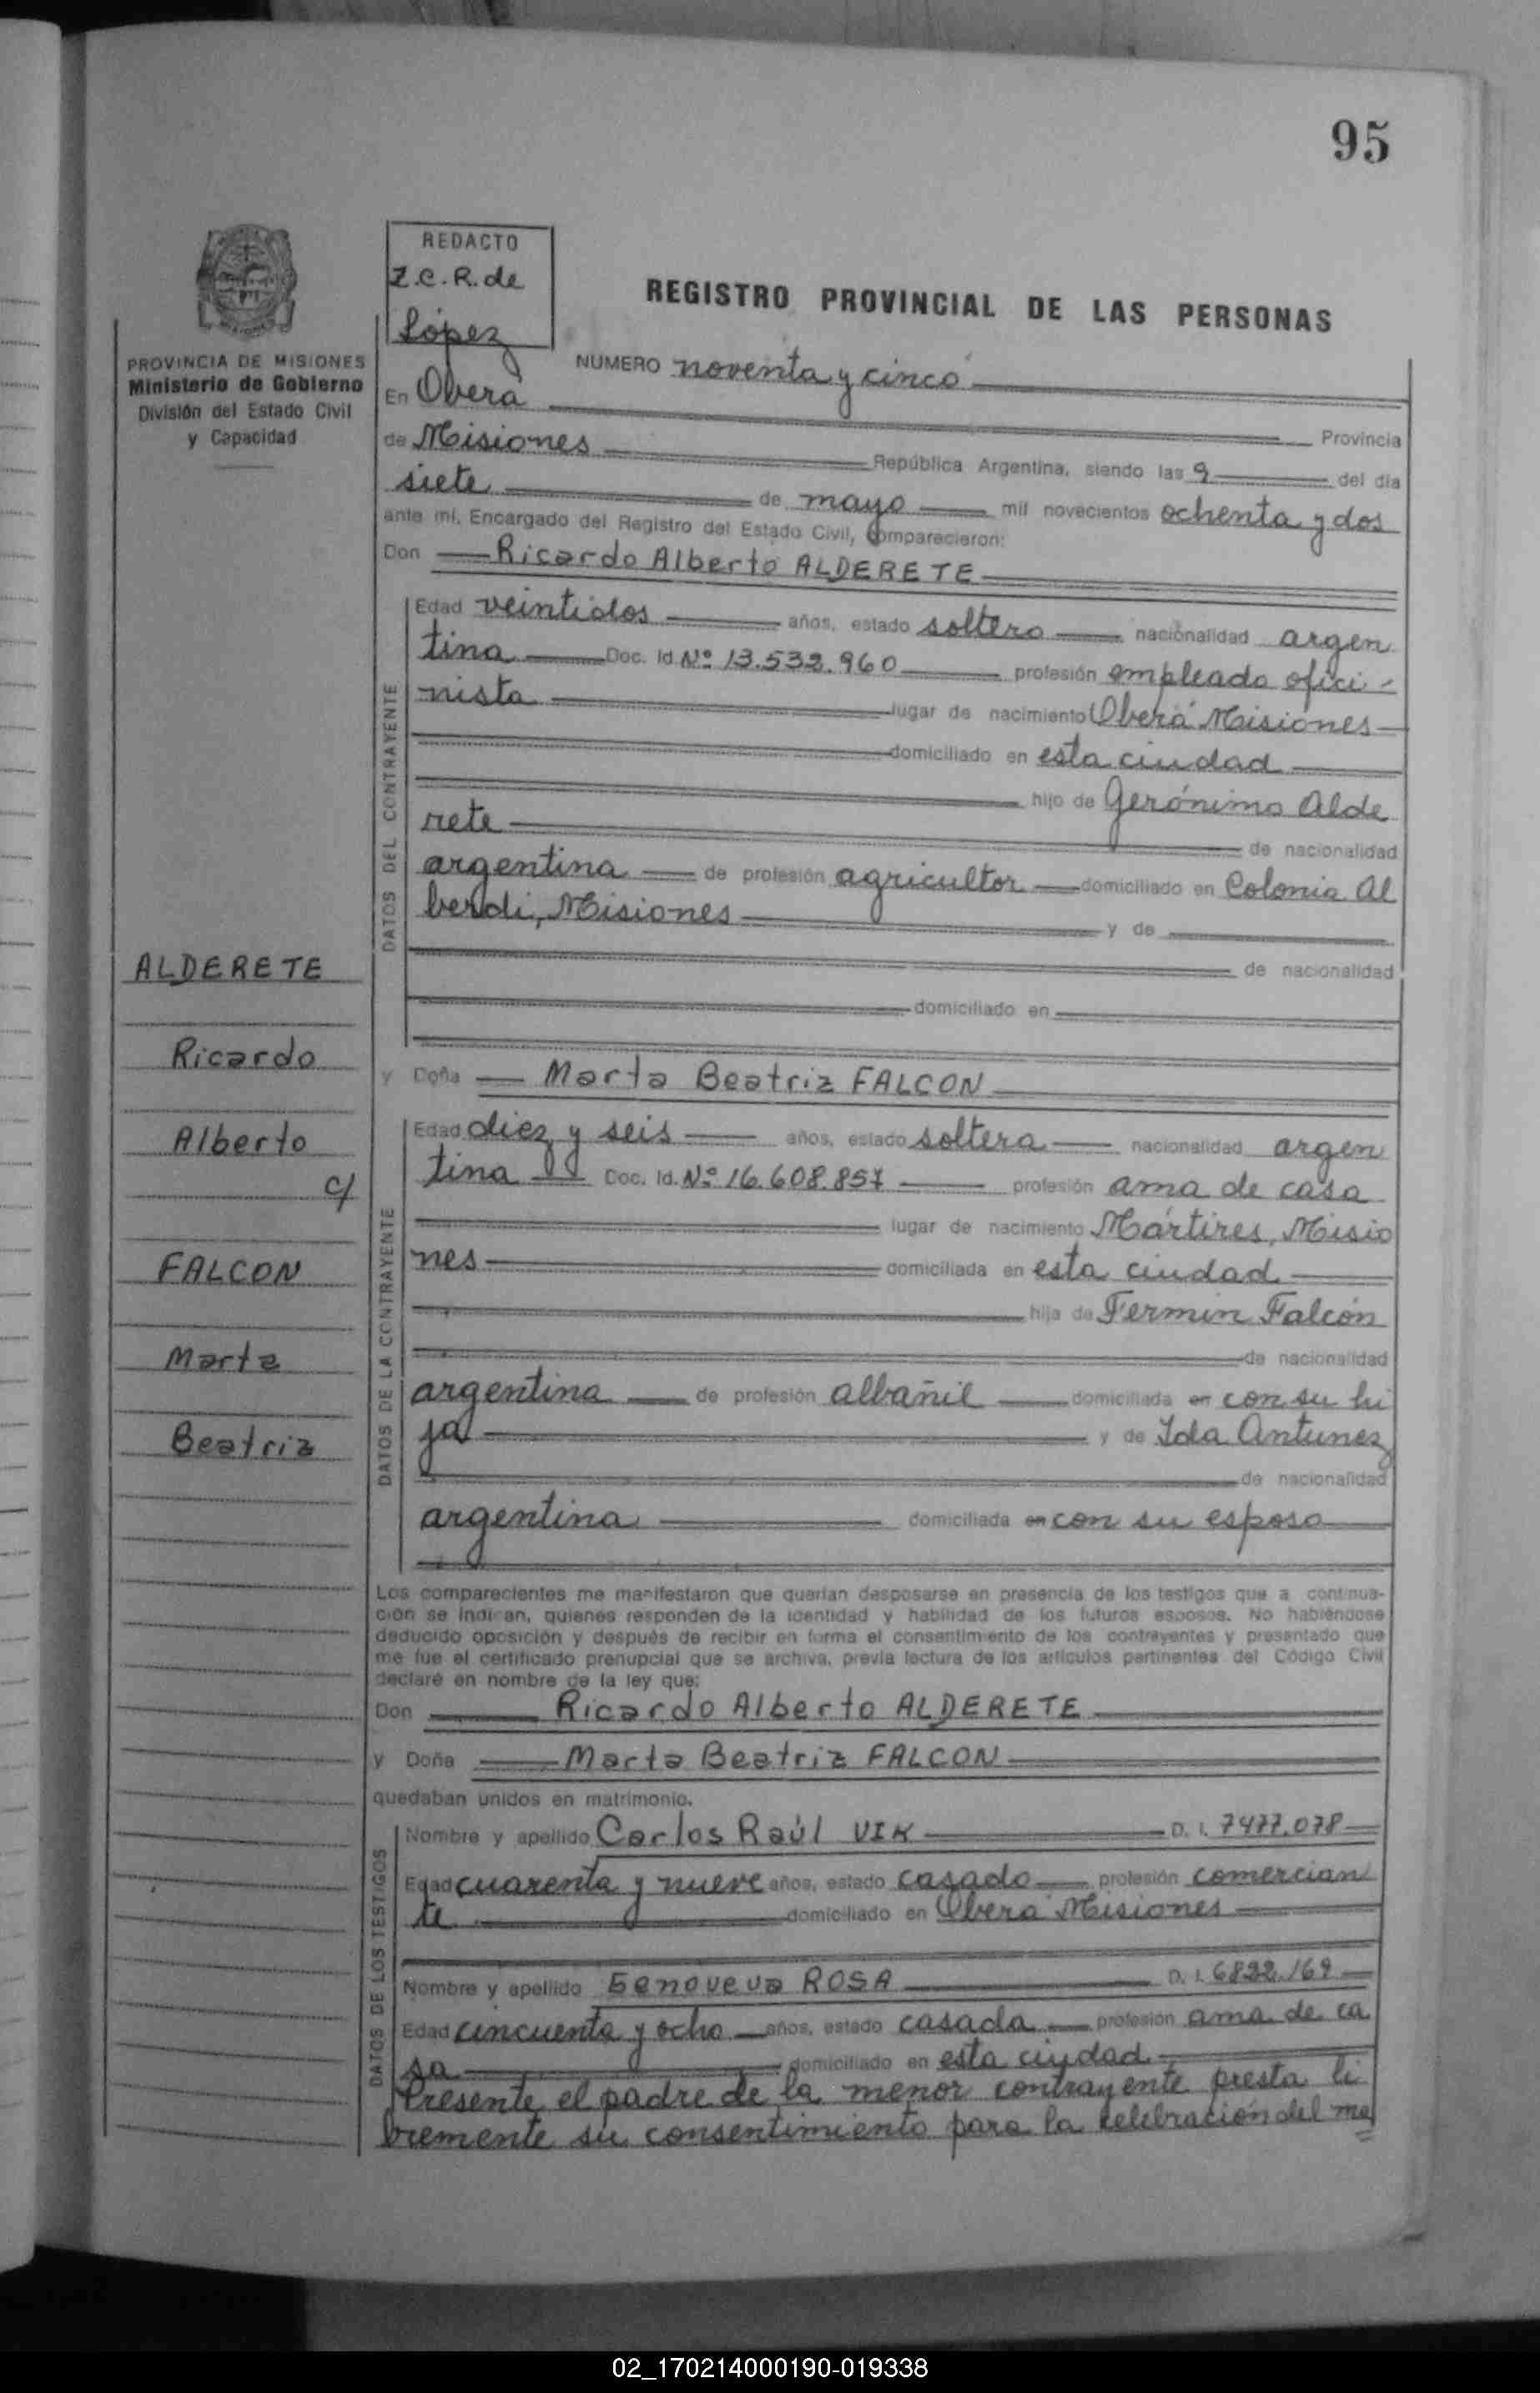 95
REDACTO
Z.C.R. de
López
REGISTRO PROVINCIAL DE LAS PERSONAS
PROVINCIA DE MISIONES
Ministerio de Gobierno
División del Estado Civil
y Capacidad
NUMERO noventa y cinco
En Oberá
Provincia
de Misiones República Argentina, siendo las 9 del día
siete de mayo mil novecientos ochenta y dos
ante mí, Encargado del Registro del Estado Civil, comparecieron:
Don Ricardo Alberto ALDERETE
DATOS DEL CONTRAYENTE
Edad veintidos años, estado soltero nacionalidad argen
tina Doc. Id. Nº 13.532.960 profesión empleado ofici-
nista lugar de nacimiento Oberá Misiones
domiciliado en esta ciudad
hijo de Gerónimo Alde
rete de nacionalidad
argentina de profesión agricultor domiciliado en Colonia Al
berdi, Misiones y de
de nacionalidad
domiciliado en
ALDERETE
Ricardo
Alberto
c/
FALCON
Marta
Beatriz
y Doña Marta Beatriz FALCON
DATOS DE LA CONTRAYENTE
Edad diez y seis años, estado soltera nacionalidad argen
tina Doc. Id. Nº 16.608.857 profesión ama de casa
lugar de nacimiento Mártires, Misio
nes domiciliada en esta ciudad
hija de Fermin Falcón
de nacionalidad
argentina de profesión albañil domiciliada en con su hi
ja y de Ida Antunez
de nacionalidad
argentina domiciliada en con su esposo
Los comparecientes me manifestaron que querían desposarse en presencia de los testigos que a continua-
ción se indican, quienes responden de la identidad y habilidad de los futuros esposos. No habiéndose
deducido oposición y después de recibir en forma el consentimiento de los contrayentes y presentado que
me fue el certificado prenupcial que se archiva, previa lectura de los artículos pertinentes del Código Civil
declaré en nombre de la ley que:
Don Ricardo Alberto ALDERETE
y Doña Marta Beatriz FALCON
quedaban unidos en matrimonio.
DATOS DE LOS TESTIGOS
Nombre y apellido Carlos Raúl VIK D. I. 7477.078
Edad cuarenta y nueve años, estado casado profesión comercian
te domiciliado en Oberá Misiones
Nombre y apellido Genoveva ROSA D. I.
Edad cincuenta y ocho años, estado casada profesión ama de ca
sa domiciliado en esta ciudad
Presente el padre de la menor contrayente presta li
bremente su consentimiento para la celebración del me
02_170214000190-019338